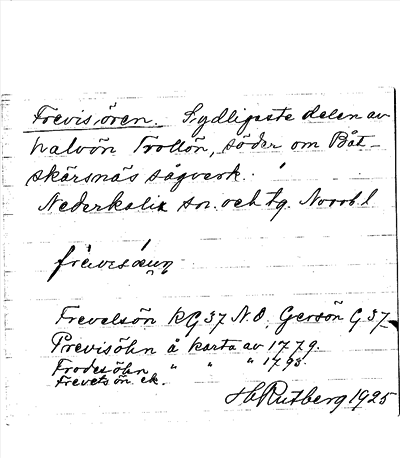 Frevisören. Sydligaste delen av
halvön Trollön, söder om Båt-
skärsnäs sågverk.
Nederkalix sn. och tg. Norrb. l
frèivesǽun
Frevelsön KG 37 N.O. Gersön G 37
Previsöhn å karta av 1779.
Frodesöhn " " " 1793.
Frevetsön ek.
Hb Rutberg 1925